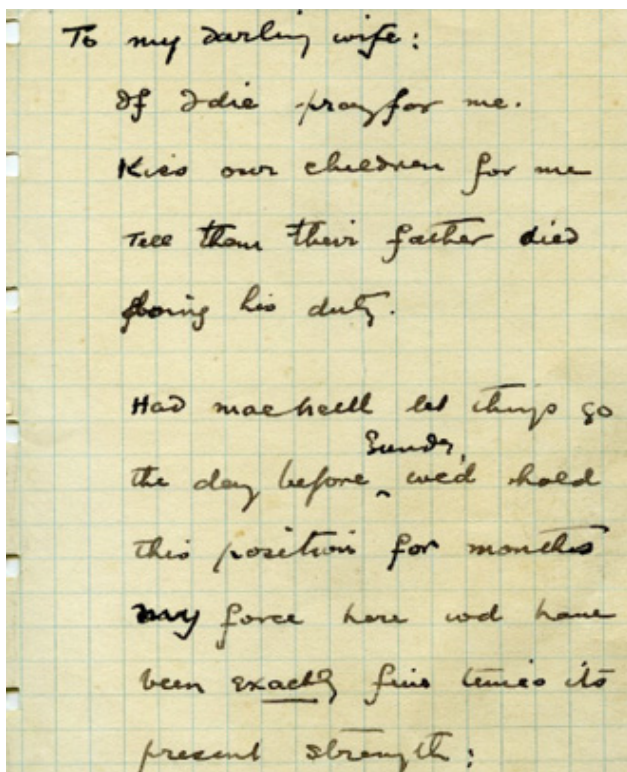 To my darling wife:
If I die pray for me.
Kiss our children for me
Tell them their father died
doing his duty.
Had macneill let things go
Sunday,
the day before ^ we'd hold
this position for months
my force here wd have
been exactly five times its
present strength: